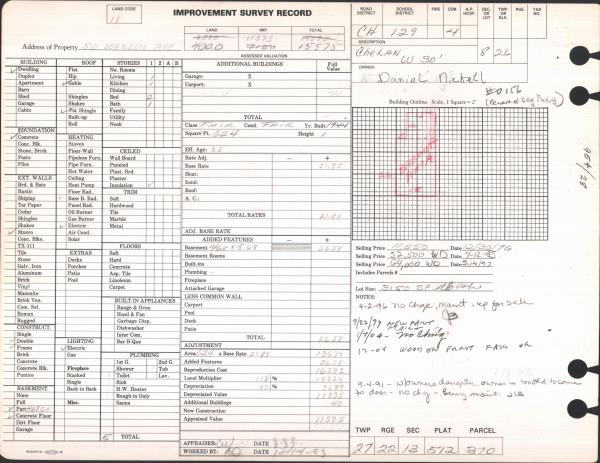 LAND CODE
11
IMPROVEMENT SURVEY RECORD
LAND IMP. TOTAL
4000 11575 15575
ASSESSED VALUATION
Address of Property 510 JOHNSON AVE
ROAD DISTRICT SCHOOL DISTRICT FIRE CEM. A.P. HOSP. SEC. OR LOT TWP. OR BLK. RGE. TAX NO.
CH 129 4
DESCRIPTION
CHELAN 8 26
W 50'
OWNER
Daniel Nickell
#D156
Building Outline. Scale, 1 Square = 2'
BUILDING ROOF STORIES 1 2 A B
Dwelling Flat No. Rooms
Duplex Hip Living 1
Apartment Gable Kitchen 1
Barn Dining
Shed Shingles Bed 2
Garage Shakes Bath 1
Cabin Pat Shingle Family
Built-up Utility
Roll Nook
FOUNDATION
Concrete HEATING
Conc. Blk. Stoves CEILED
Stone, Brick Floor-Wall Wall Board
Posts Pipeless Furn. Panel
Piles Pipe Furn. Paneled
Hot Water Plast. Brd.
EXT. WALLS Ceiling Plaster
Brd. & Bats Heat Pump Insulation
Rustic Floor Rad. TRIM
Shiplap Base B. Rad. Soft
Tar Paper Panel Rad. Hardwood
Cedar Oil Burner Tile
Shingles Gas Burner Marble
Shakes Electric Metal
Stucco Air Cond.
Conc. Blks. Solar
TX-111 FLOORS
Tile EXTRAS Soft
Stone Decks Hard
Galv. Iron Porches Concrete
Aluminum Patio Asp. Tile
Brick Pool Linoleum
Vinyl Carpet
Masonite
Brick Ven. BUILT-IN APPLIANCES
Con. Sel. Range & Oven
Roman Hood & Fan
Rugged Garbage Disp.
Dishwasher
CONSTRUCT. Inter Com.
Single Bar-B-Que
Double LIGHTING
Frame Electric PLUMBING
Brick Gas 1st G. 2nd G.
Concrete Fireplace Shower Tub
Concrete Blk. Stacked Toilet Lav.
Pumice Single Sink
BASEMENT Back to Back H.W. Heater
None Rough-in Only
Full Misc. Sauna
Part 468 SF
Concrete Floor
Dirt Floor
Garage 5 TOTAL
ADDITIONAL BUILDINGS Full Value
Garage: X
Carport: X
TOTAL
Class FAIR Cond. FAIR Yr. Built 1944
Square Ft. 624 Height 1
Eff. Age: 25
Rate Adj. - +
Base Rate 21.85
Heat:
Insul:
Roof:
A. C.:
TOTAL RATES 21.85
ADJ. BASE RATE
ADDED FEATURES - +
Basement 468 x 5.68 2658
Basement Rooms
Built-ins
Plumbing -
Fireplace
Attached Garage
LESS COMMON WALL
Carport
Pool
Deck
Porch
TOTAL 2658
ADJUSTMENT
Area 624 x Base Rate 21.85 13634
Added Features 2658
Reproduction Cost 16292
Local Multiplier 118% 19224
Depreciation 40% 7689
Depreciated Value 11535
Additional Buildings 40
New Construction
Appraised Value 11575
APPRAISER DATE 8-83
WORKED BY: AD DATE 12-14-83
Selling Price 11,550 Date 12/30/76
Selling Price 52,500 WD Date 7-12-95
Selling Price 54,000 WD Date 3-14-97
Includes Parcels #
Lot Size: 3150 SF
NOTES:
4-2-96 no chge, maint. up for sale
9/22/99 NEW PAINT
1/7/04 - no chng
9-4-91 - w/owners daughter, owner is too old to come
to door - no chg - being maint.
TWP RGE SEC PLAT PARCEL
27 22 13 512 370